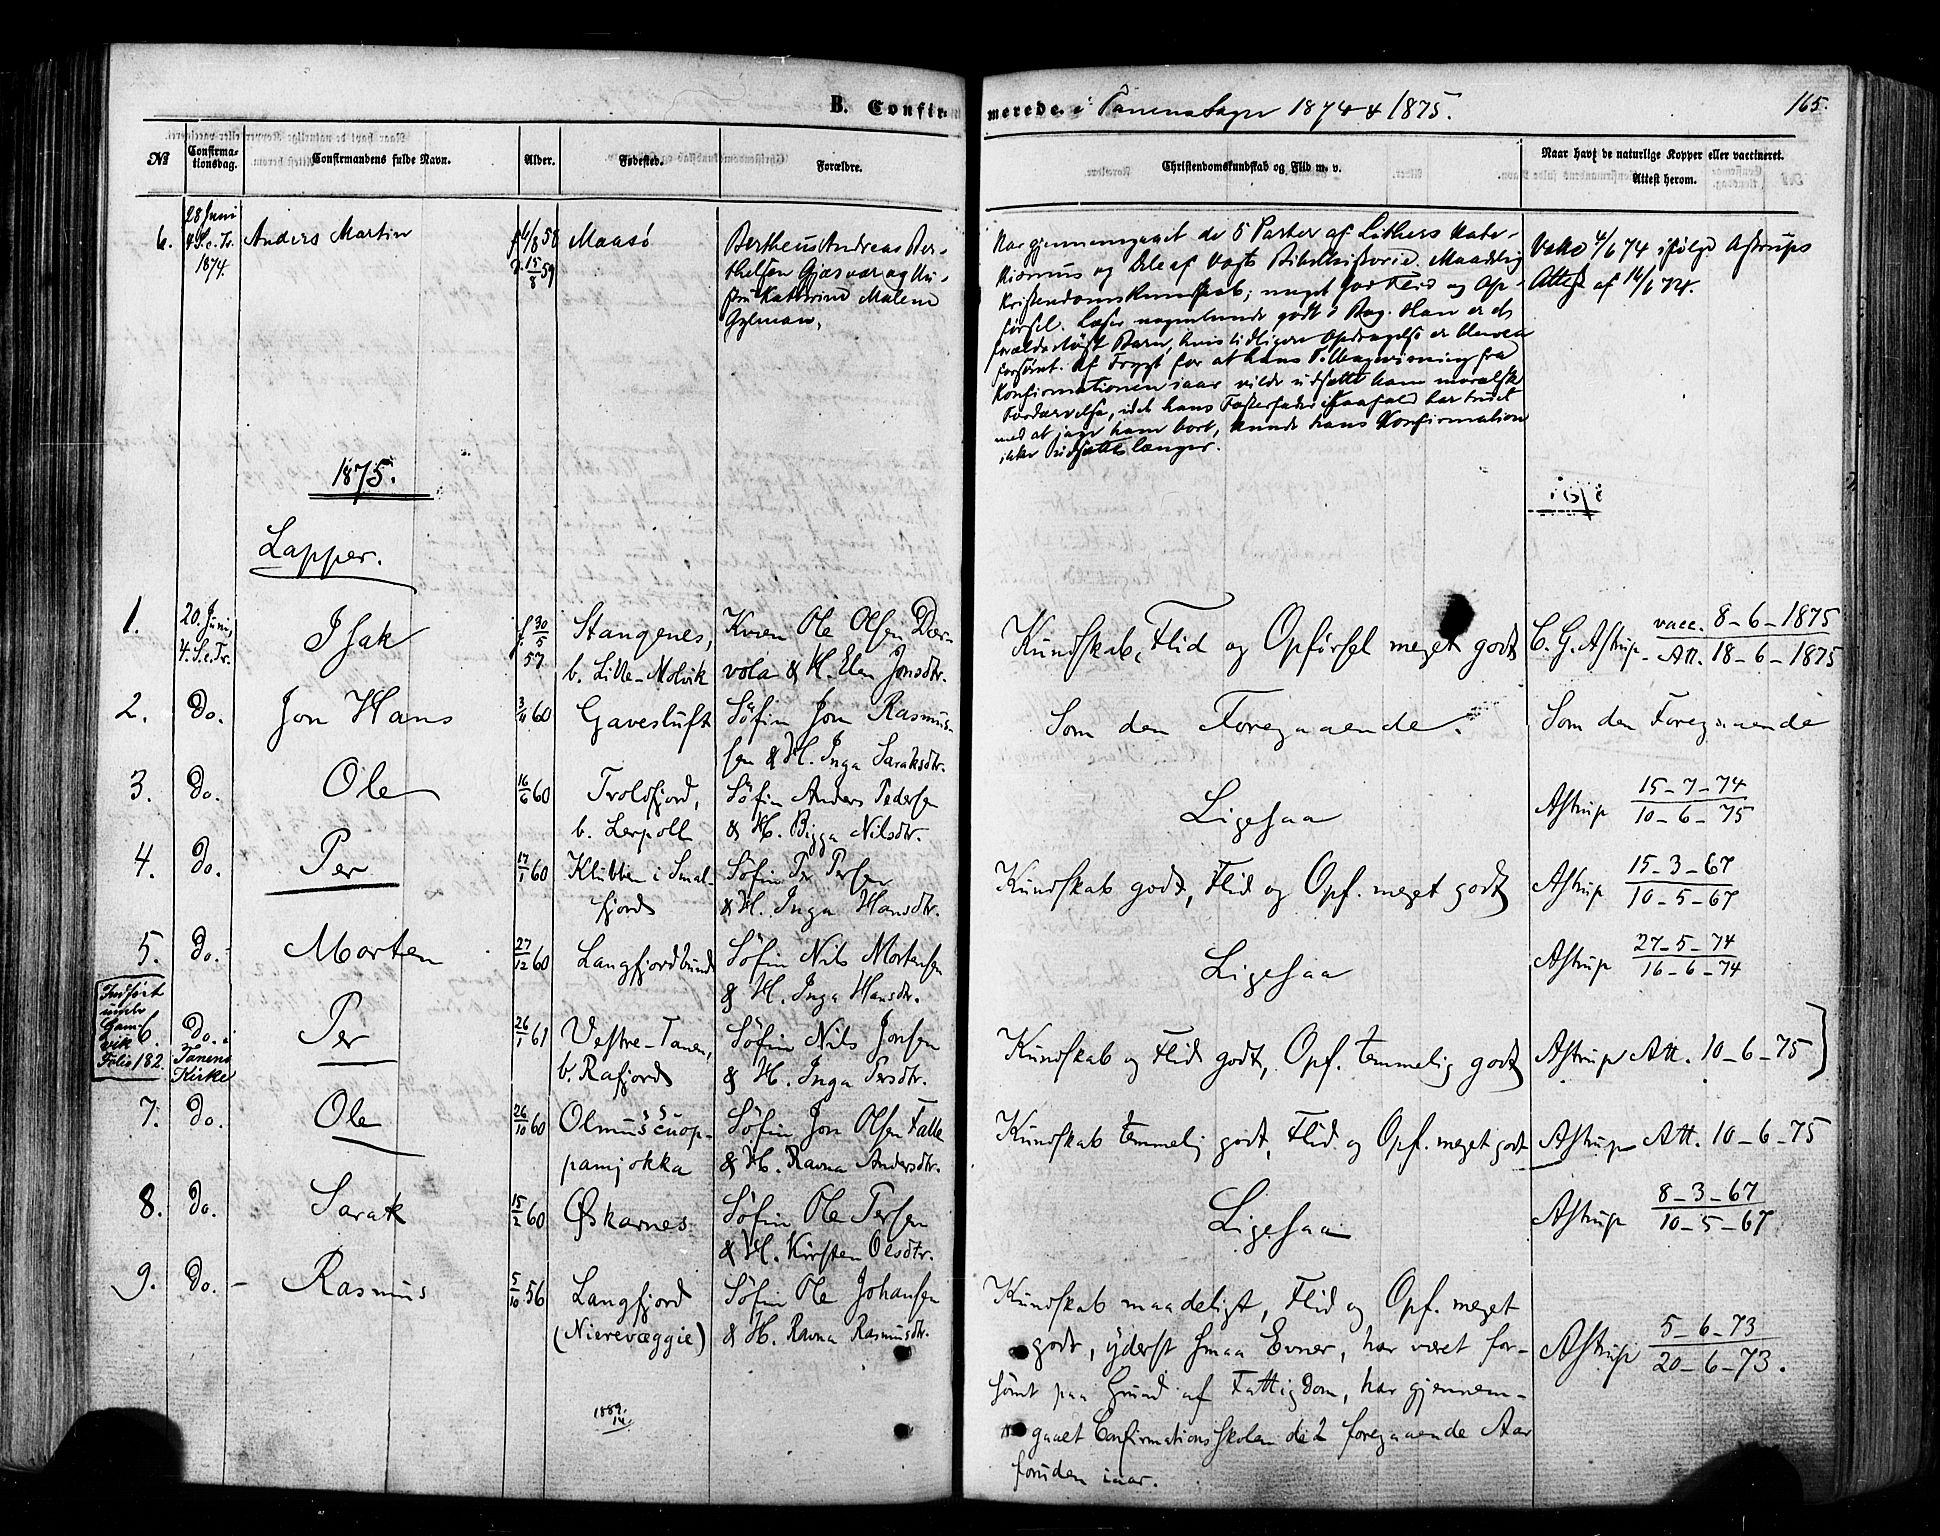 B. Confirmerede i Tanens Sogn 1874 & 1875.
165.
No
Confirmationsdag.
Confirmandens fulde Navn.
Alder.
Fødested.
Forældre.
Christendomskundskab og Flid m. v.
Naar havt de naturlige Kopper eller vaccineret.
Attest herom.
6.
28 Juni
4 S. e. Tr.
1874.
Anders Martin
f 6/8 58
d. 15/8 59
Maasö
Bertheus Andreas Ber-
thelsen Gjæsvær og Hu-
stru Kathrine Malene
Har gjennemgaaet de 5 Parter af Luthers Kate-
kismus og Dele af Vogts Bibelhistorie. Maadelig
Kristendomskundskab; meget god Flid og Op-
försel. Læser nogenlunde godt i Bog. Han er et
forældrelöst Barn, hvis tidligere Opdragelse er bleven
forsömt. Af Frygt for at hans Tilbagevisning fra
Konfirmationen iaar vilde udsætte ham moralsk
Fordærvelse, idet hans Fosterfader isaafald har truet
med at jage ham bort, kunde hans Konfirmation
ikke udsættes længer.
Vakc 4/6 74 ifölge Astrups
Attest af 16/6 74.
1875.
Lapper.
1.
20. Juni,
4. S. e. Tr.
Isak
f 30/5
57
Stangenes,
b. Lille-Molvik
Kvæn Ole Olsen Dær-
vola & H. Elen Jonsdtr.
Kundskab, Flid og Opförsel meget godt
C. G. Astrup vacc. 8-6-1875
Att. 18-6-1875
2.
Do.
Jon Hans
3/4 60
Gavesluft
Söfin Jon Rasmus-
sen & H. Inga Saraksdtr.
Som den Foregaaende.
Som den Foregaaende
3.
Do.
Ole
16/6 60
Troldfjord,
b. Lerpoll
Söfin Anders Pedersen
& H. Bigga Nilsdtr.
Ligesaa
Astrup 15-7-74
10-6-75
4.
Do.
Per
17/1 60
Klubben i Smal-
fjord
Söfin Per Persen
& H. Inga Hansdtr.
Kundskab godt, Flid og Opf. meget godt
Astrup 15-3-67
10-5-67
5.
Do.
Morten
27/12 60
Langfjordbund
Söfin Nils Mortensen
& H. Inga Hansdtr.
Ligesaa
Astrup 27-5-74
16-6-74
Indfört
under
Gam-
vik
Folio 182.
6.
Do. i
Tanens
Kirke
Per
26/1 61
Vestre-Tanen,
b. Rafjord
Söfin Nils Jonsen
& H. Inga Persdtr.
Kundskab og Flid godt, Opf. temmelig godt
Astrup Att. 10-6-75
7.
Do.
Ole
26/10 60
Olmusčuop-
pamjokka
Söfin Jon Olsen Falle
& H. Ravna Andersdtr.
Kundskab temmelig godt, Flid og Opf. meget godt
Astrup Att. 10-6-75
8.
Do.
Sarak
15/2 60
Öskarnes
Söfin Ole Persen
& H. Kirsten Olsdtr.
Ligesaa
Astrup 8-3-67
10-5-67
9.
Do.
Rasmus
5/10 56
Langfjord
(Nierevæggie)
Söfin Ole Johansen
& H. Ravna Rasmusdtr.
Kundskab maadeligt, Flid og Opf. meget
godt, yderst smaa Evner, har været for-
sömt paa Grund af Fattigdom, har gjennem-
gaaet Confirmationsskolen de 2 foregaaende Aar
foruden iaar.
Astrup 5-6-73
20-6-73.
1889.
14.